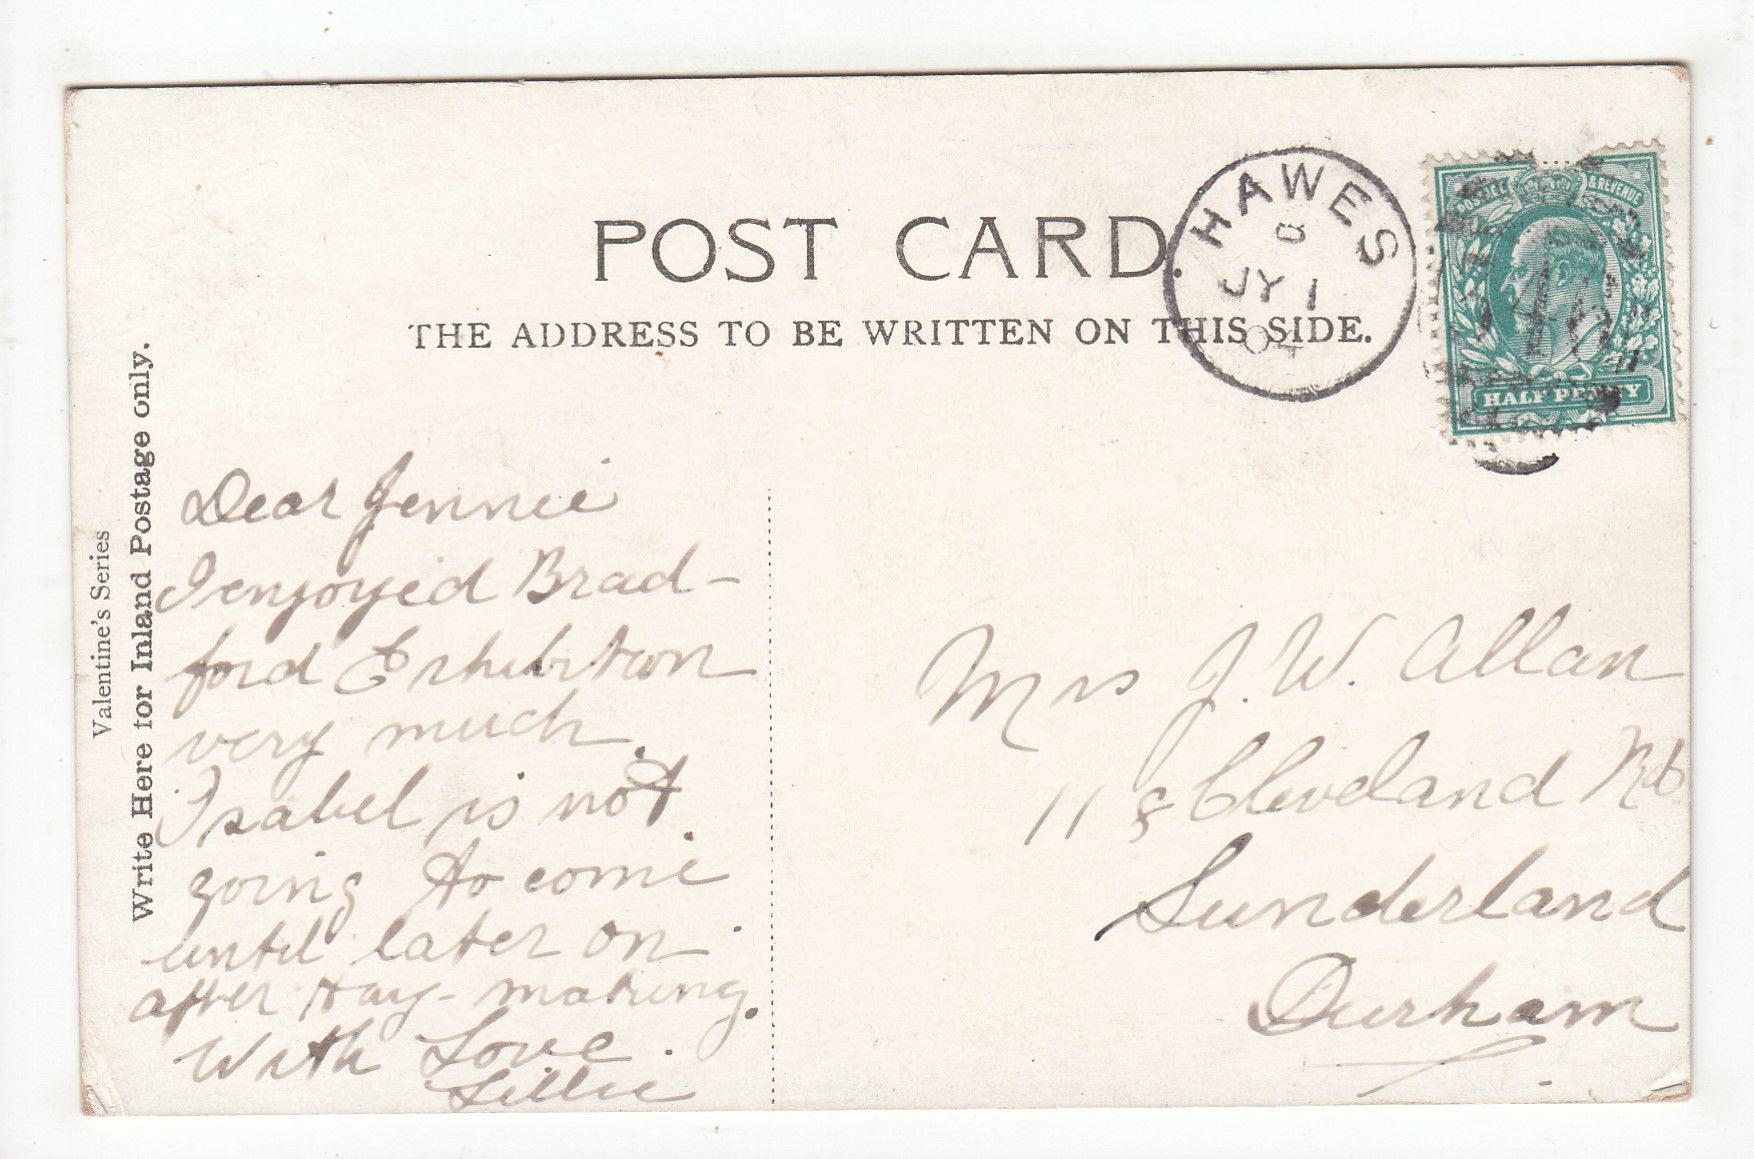 POST CARD.
THE ADDRESS TO BE WRITTEN ON THIS SIDE.
HAWES
JY 1
04
POSTAGE & REVENUE
HALF PENNY
Valentine's Series
Write Here for Inland Postage only.
Dear Jennie
I enjoyed Brad-
ford Exhibition
very much.
Isabel is not
going to come
until later on
after Hay-making.
With Love.
Lillie
Mrs J. W. Allan
118 Cleveland Rd
Sunderland
Durham